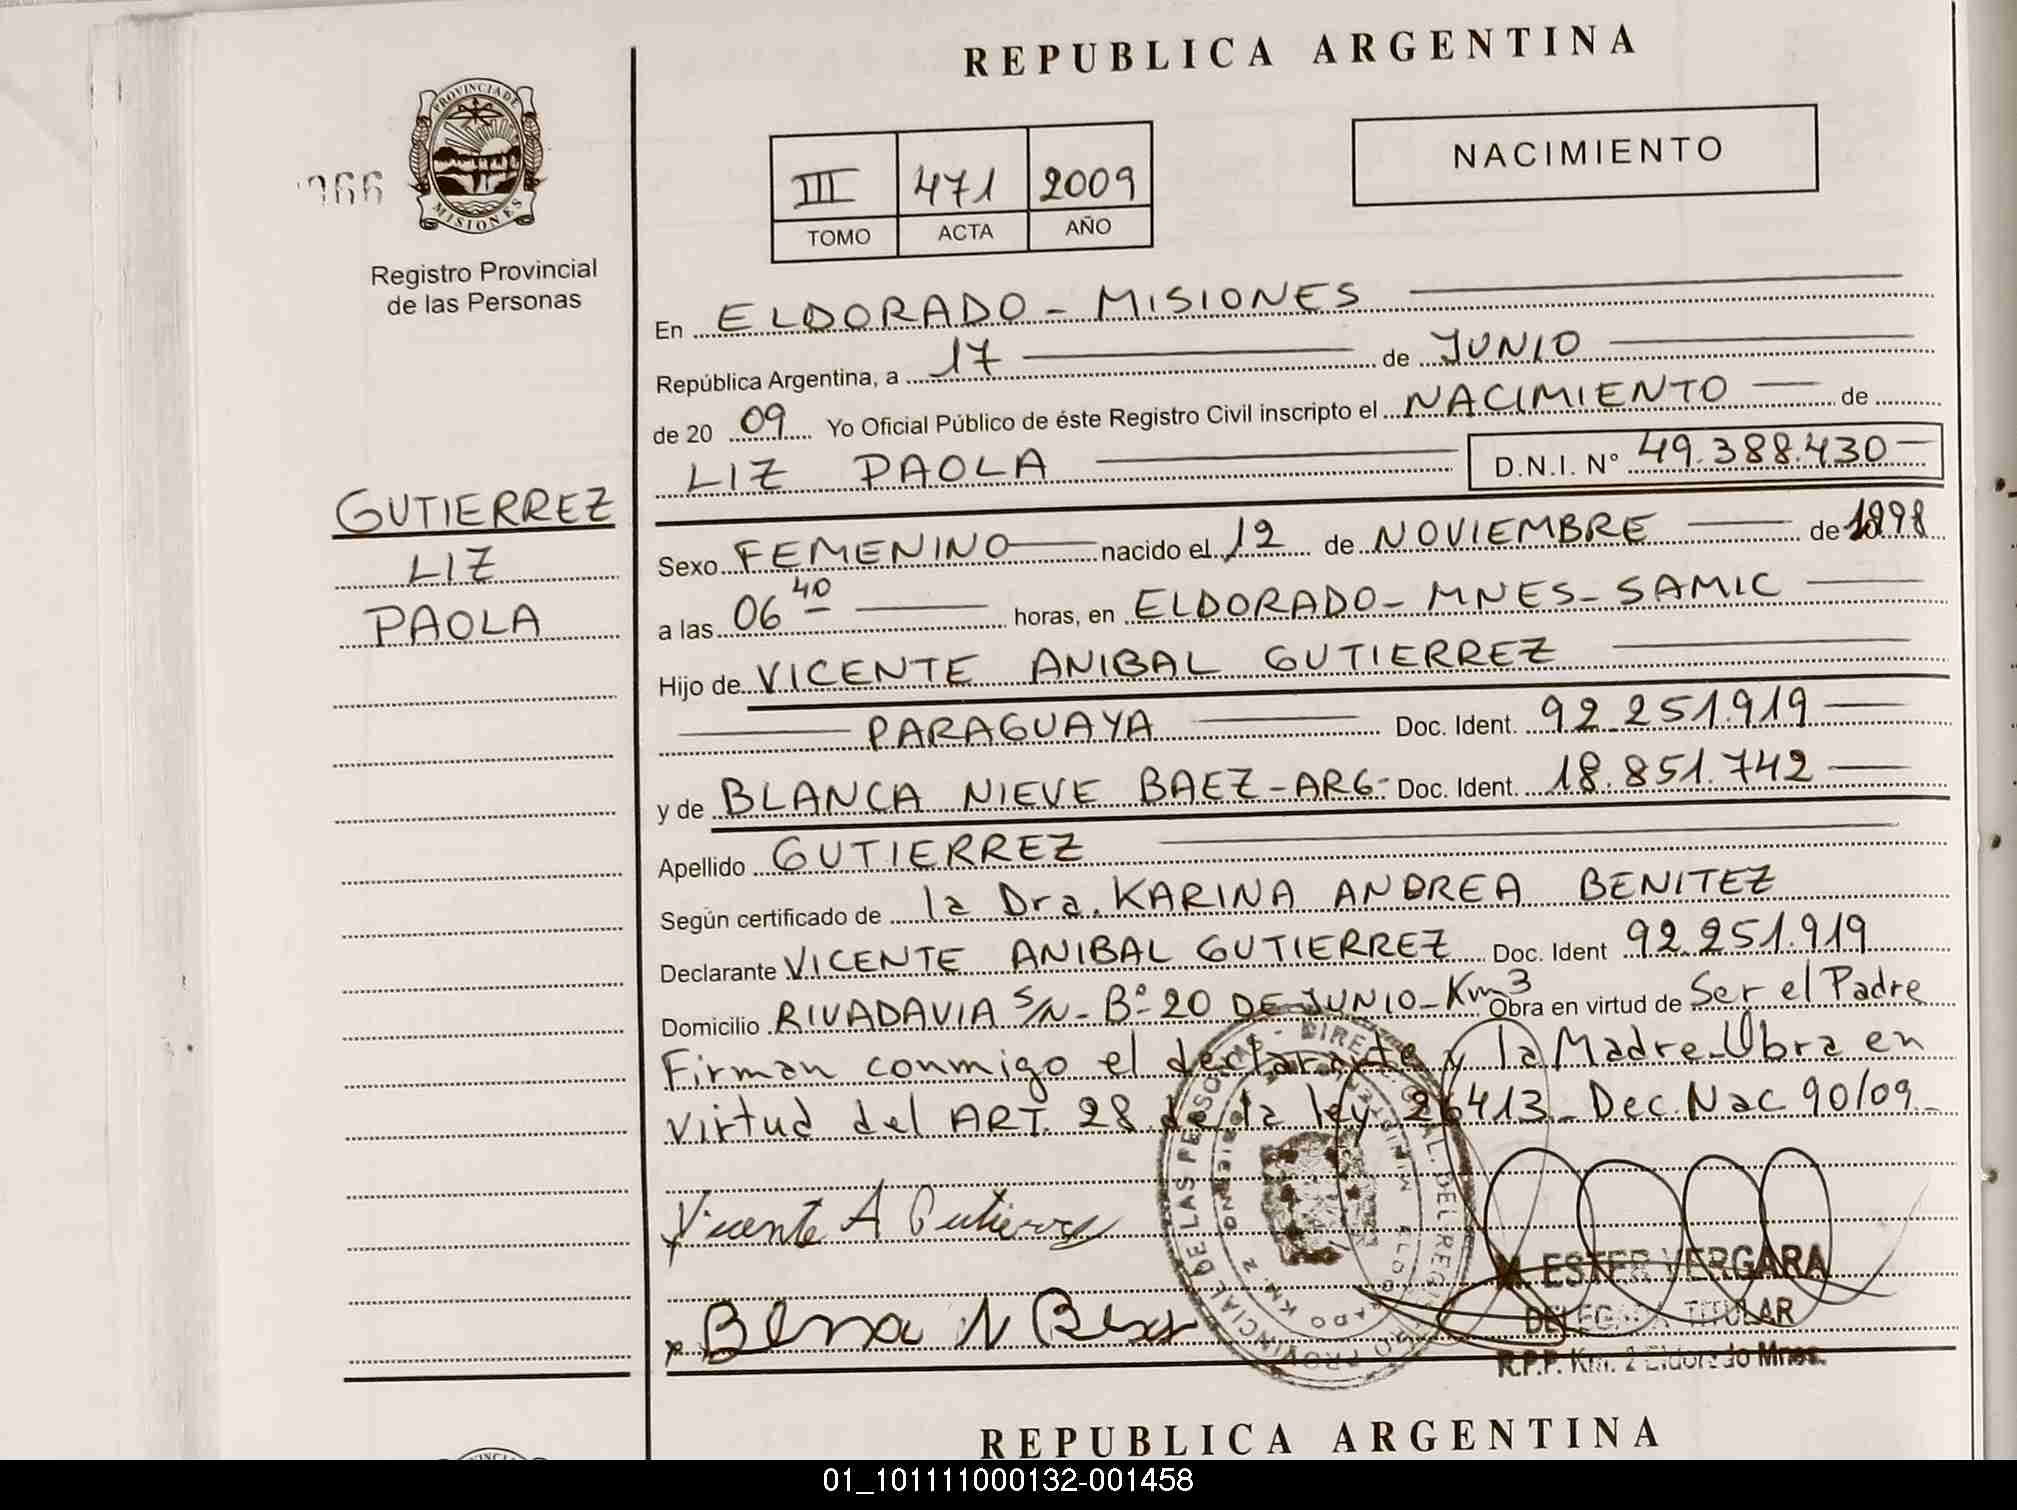 REPUBLICA ARGENTINA
PROVINCIA DE
MISIONES
Registro Provincial
de las Personas
III 471 2009
TOMO ACTA AÑO
NACIMIENTO
En ELDORADO - MISIONES
República Argentina, a 17 de JUNIO
de 20 09 Yo Oficial Público de éste Registro Civil inscripto el NACIMIENTO de
LIZ PAOLA D.N.I. N° 49.388.430
GUTIERREZ
LIZ
PAOLA
Sexo FEMENINO nacido el 12 de NOVIEMBRE de 1998
a las 06 40 horas, en ELDORADO - MNES - SAMIC
Hijo de VICENTE ANIBAL GUTIERREZ
PARAGUAYA Doc. Ident. 92.251.919
y de BLANCA NIEVE BAEZ - ARG - Doc. Ident. 18.851.742
Apellido GUTIERREZ
Según certificado de la Dra. KARINA ANDREA BENITEZ
Declarante VICENTE ANIBAL GUTIERREZ Doc. Ident 92.251.919
Domicilio RIVADAVIA S/N - B° 20 DE JUNIO - Km 3 Obra en virtud de Ser el Padre
Firman conmigo el declarante y la Madre. Obra en
virtud del ART. 28 de la ley 26413 - Dec. Nac 90/09 -
Vicente A Gutierrez
M. ESTER VERGARA
DELEGADA TITULAR
R.P.P. Km. 2 Eldorado Mnes.
REPUBLICA ARGENTINA
01_101111000132-001458